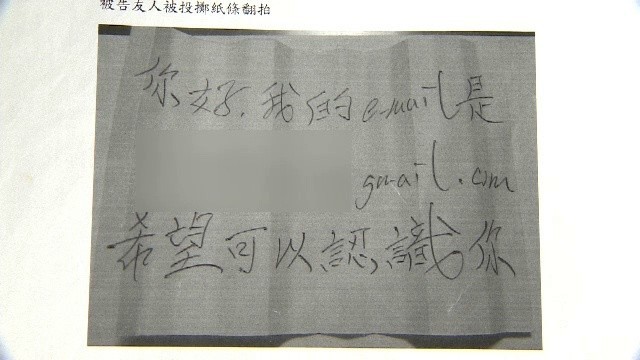 被告友人被投擲紙條翻拍
你好.我的e-mail是
gmail.com
希望可以認識你